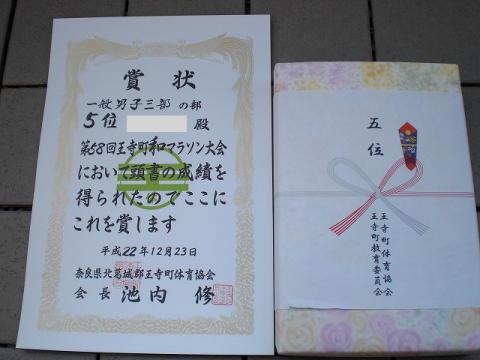 賞状
一般男子三部 の部
5位 殿
第58回王寺町和マラソン大会
において頭書の成績を
得られたのでここに
これを賞します
平成22年12月23日
奈良県北葛城郡王寺町体育協会
会長 池内 修
五位
王寺町体育協会
王寺町教育委員会